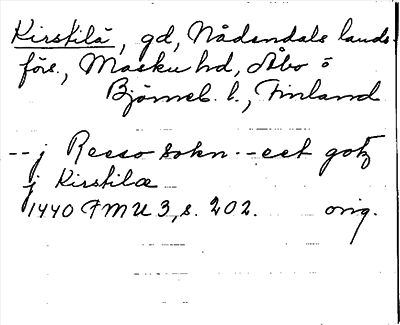 Kirskilä, gd, Nådendals lands-
förs., Masku hd, Åbo o
Björneb. l., Finland
-- j Reso sokn -- eet gotz
j Kirskilæ
1440 FMU 3, s. 202. orig.